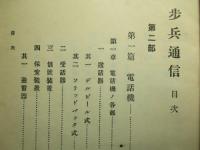 歩兵通信 目次
第二部
第一篇 電話機
第一章 電話機ノ各部
一 送話器
其一 デルビール式
其二 ソリッドバック式
二 受話器
三 信號裝置
四 保安裝置
其一 避雷器
目次